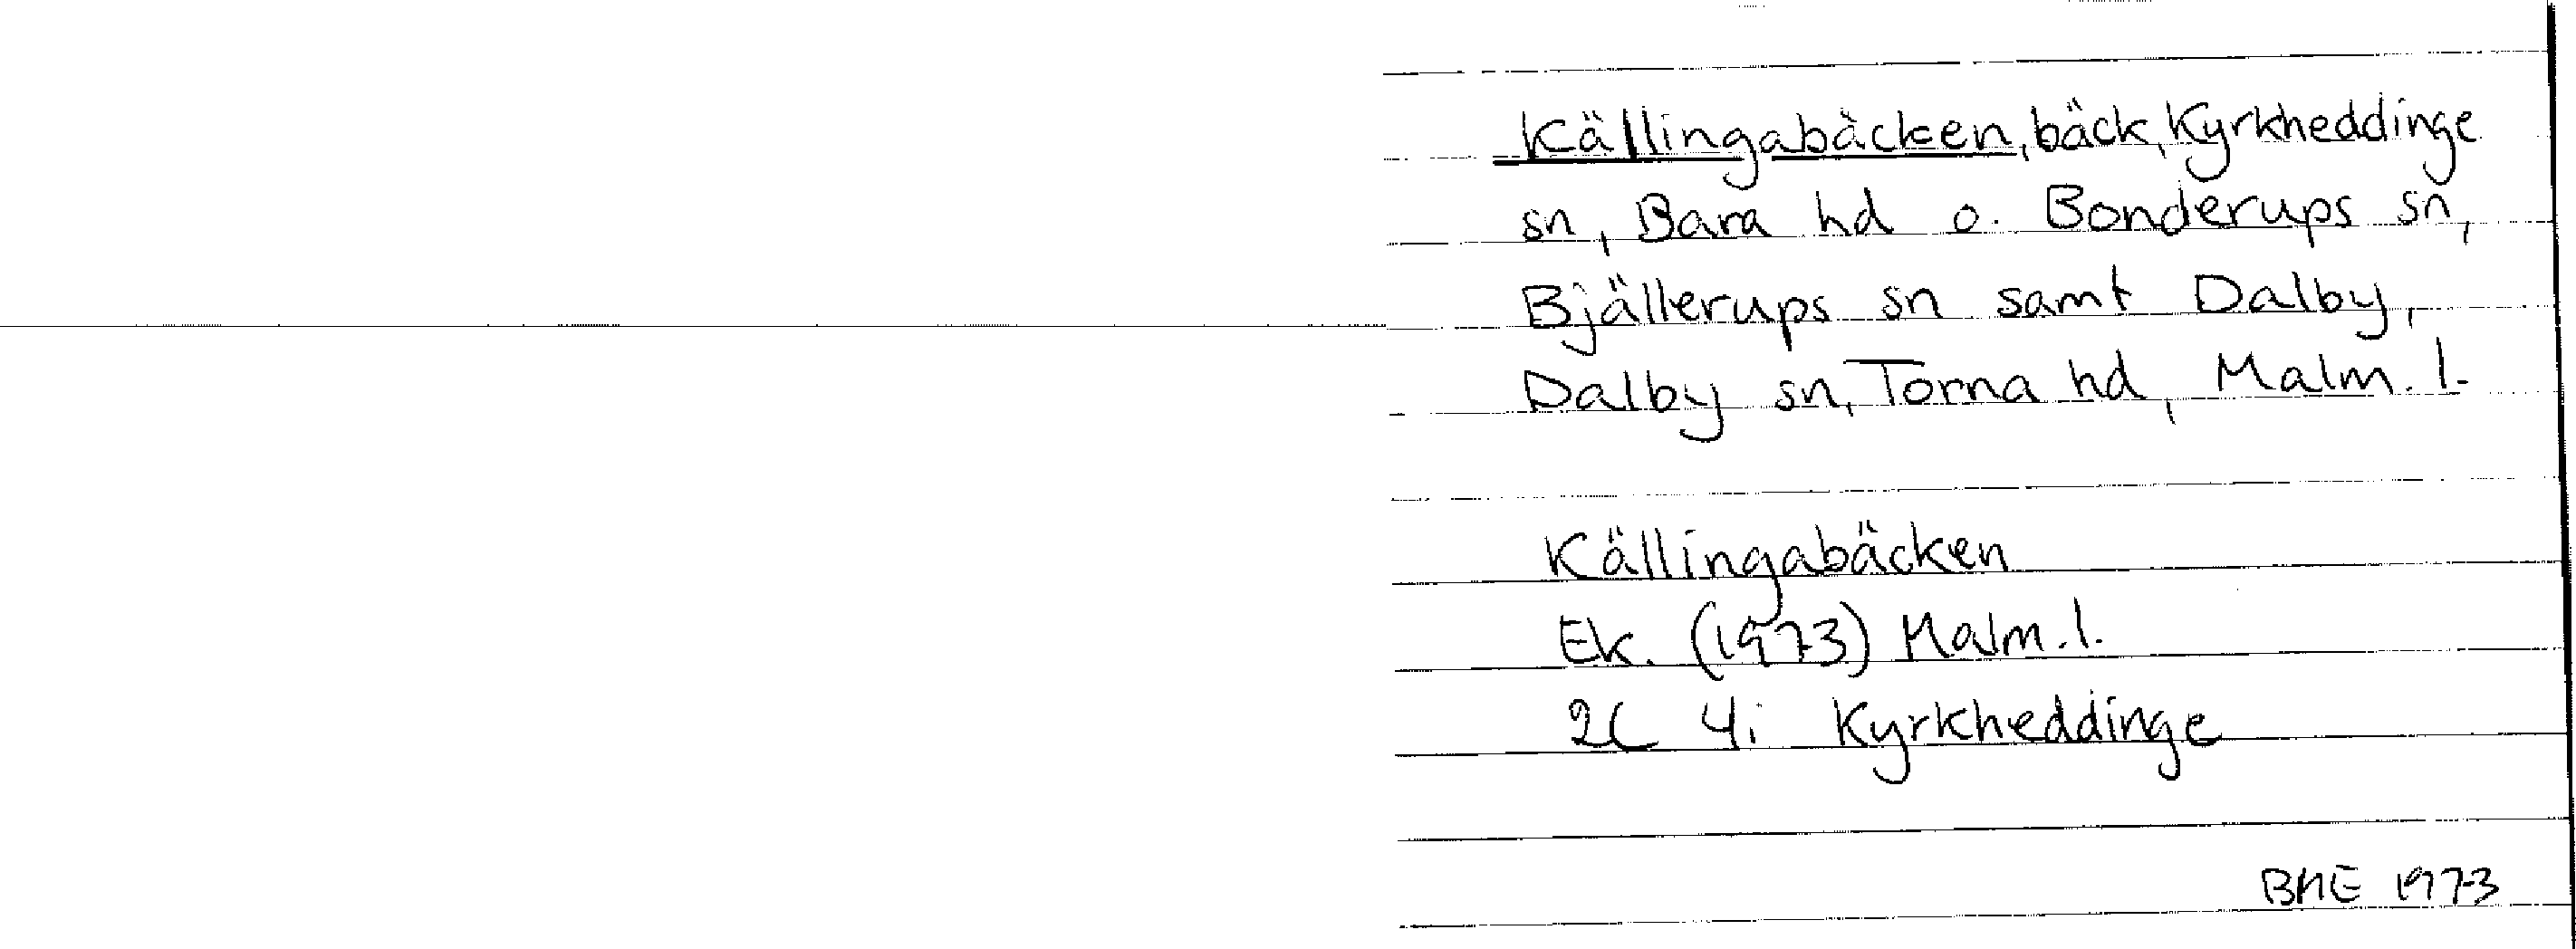 Källingabäcken, bäck, Kyrkheddinge
sn, Bara hd o. Bonderups sn,
Bjällerups sn samt Dalby,
Dalby sn, Torna hd, Malm. l.
Källingabäcken
Ek. (1973) Malm. l.
2C 4i Kyrkheddinge
BME 1973